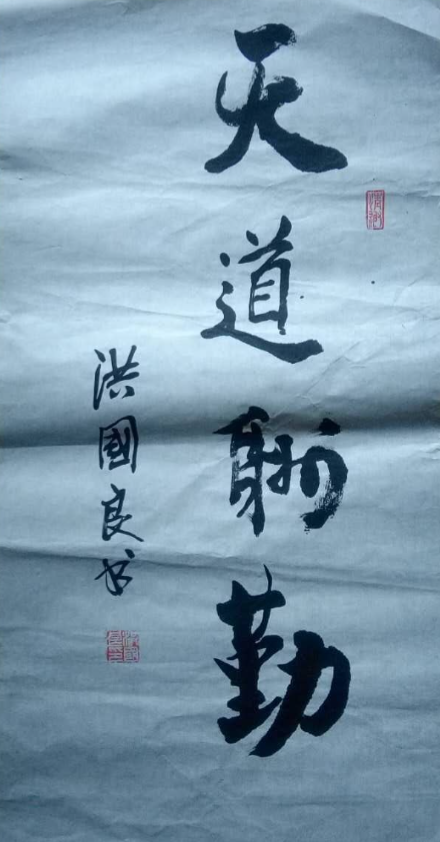 天道酬勤
洪國良书